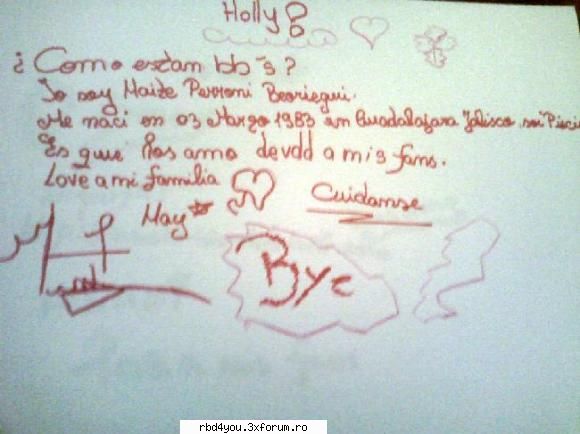 Holly!
¿Como estam bb's?
Jo soy Maite Perroni Beoriegui.
Me naci en 03 Marzo 1983 en Guadalajara Jalisco, soi Pisci
Es que los amo devdd a mis fans.
Love a mi familia
Cuidanse
May
Bye
rbd4you.3xforum.ro